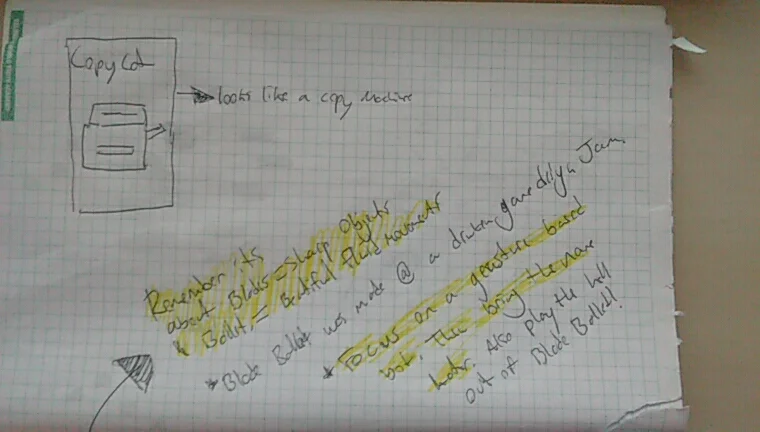 CopyCat
looks like a copy machine
Remember its
about Blades = Sharp Objects
& Ballet = Beautiful fluid movements
* Blade Ballet was made @ a drunken game design Jam
* Focus on a gesture based
bot, then bring the name
later. Also play the hell
out of Blade Ballet!